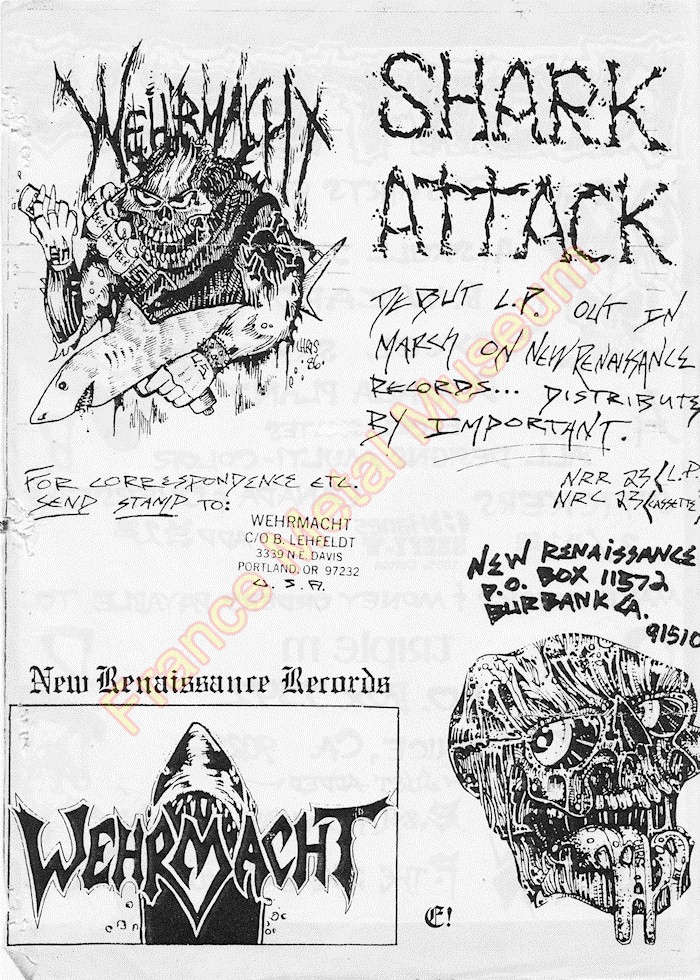 WEHRMACHT
SHARK
ATTACK
DEBUT L.P. OUT IN
MARCH ON NEW RENAISSANCE
RECORDS... DISTRIBUTE
BY IMPORTANT.
NRR 23 (L.P.
NRC 23 (CASSETTE
FOR CORRESPONDENCE ETC.
SEND STAMP TO:
WEHRMACHT
C/O B. LEHFELDT
3339 N.E. DAVIS
PORTLAND, OR 97232
U.S.A.
NEW RENAISSANCE
P.O. BOX 11572
BURBANK CA.
91510
New Renaissance Records
WEHRMACHT
E!
France Metal Museum